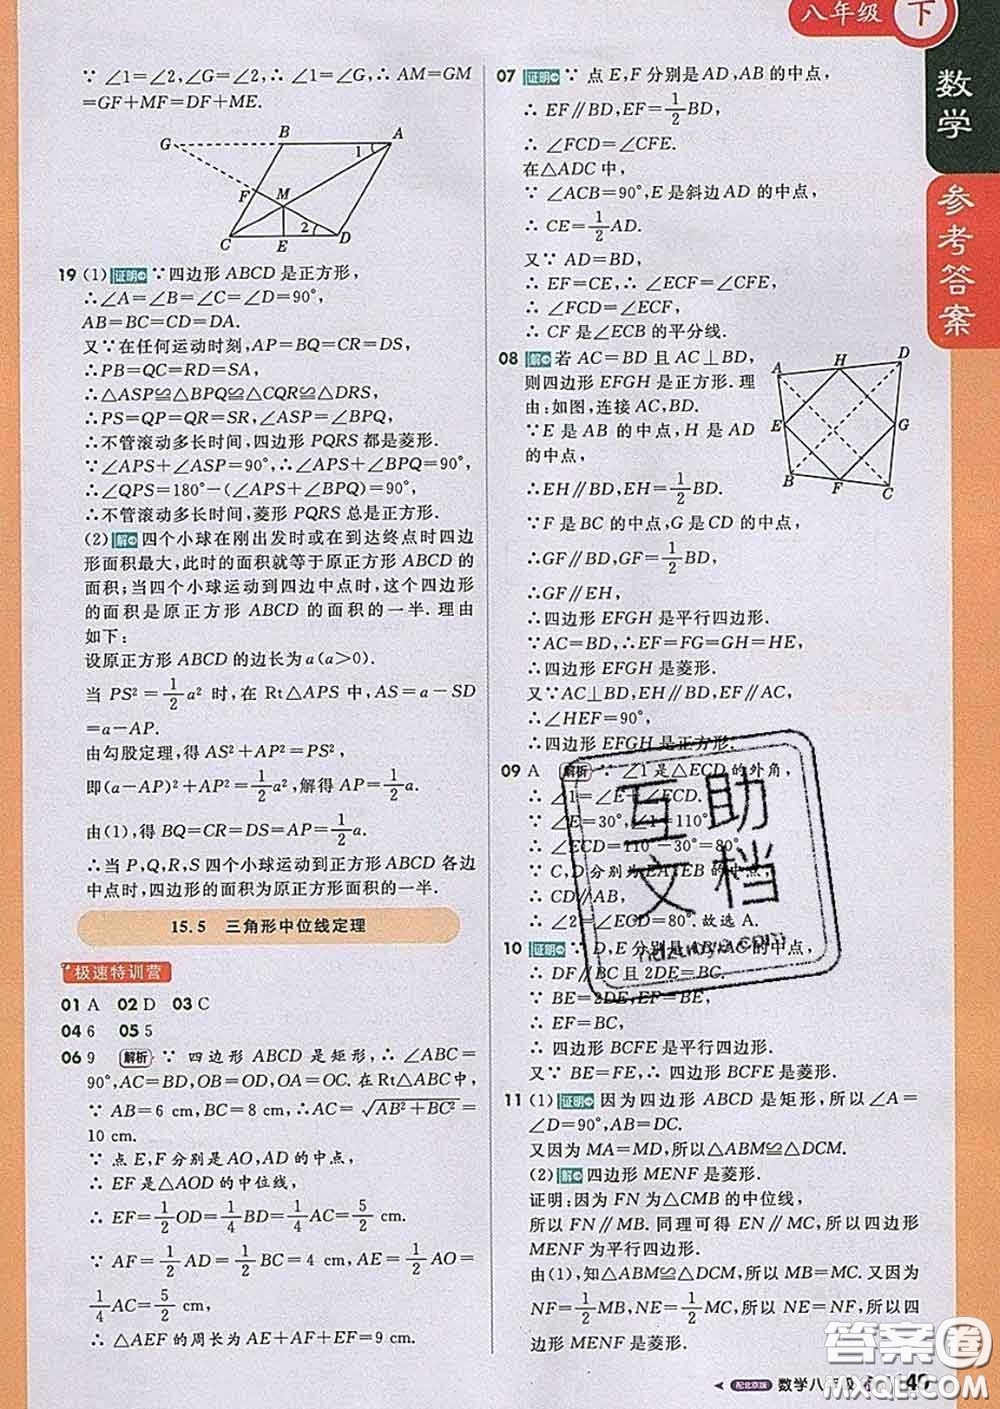 八年级 下
数学
参考答案
∵ ∠1=∠2,∠G=∠2,∴ ∠1=∠G,∴ AM=GM
=GF+MF=DF+ME.
G B A
1
F M
2
C E D
19 (1) 证明 ∵四边形 ABCD 是正方形,
∴∠A=∠B=∠C=∠D=90°,
AB=BC=CD=DA.
又∵在任何运动时刻,AP=BQ=CR=DS,
∴PB=QC=RD=SA,
∴△ASP≌△BPQ≌△CQR≌△DRS,
∴PS=QP=QR=SR,∠ASP=∠BPQ,
∴不管滚动多长时间,四边形 PQRS 都是菱形.
∵∠APS+∠ASP=90°,∴∠APS+∠BPQ=90°,
∴∠QPS=180°-(∠APS+∠BPQ)=90°,
∴不管滚动多长时间,菱形 PQRS 总是正方形.
(2) 解 四个小球在刚出发时或在到达终点时四边
形面积最大,此时的面积就等于原正方形 ABCD 的
面积;当四个小球运动到四边中点时,这个四边形
的面积是原正方形 ABCD 的面积的一半. 理由
如下:
设原正方形 ABCD 的边长为 a(a>0).
当 PS²=1/2a² 时,在 Rt△APS 中,AS=a-SD
=a-AP.
由勾股定理,得 AS²+AP²=PS²,
即(a-AP)²+AP²=1/2a²,解得 AP=1/2a.
由(1),得 BQ=CR=DS=AP=1/2a.
∴当 P,Q,R,S 四个小球运动到正方形 ABCD 各边
中点时,四边形的面积为原正方形面积的一半.
15.5 三角形中位线定理
极速特训营
01 A 02 D 03 C
04 6 05 5
06 9 解析 ∵ 四边形 ABCD 是矩形,∴ ∠ABC=
90°,AC=BD,OB=OD,OA=OC. 在 Rt△ABC 中,
∵ AB=6 cm,BC=8 cm,∴ AC=√(AB²+BC²)=
10 cm.
∵ 点 E,F 分别是 AO,AD 的中点,
∴ EF 是△AOD 的中位线,
∴ EF=1/2OD=1/4BD=1/4AC=5/2 cm.
∵ AF=1/2AD=1/2BC=4 cm,AE=1/2AO=
1/4AC=5/2 cm,
∴ △AEF 的周长为 AE+AF+EF=9 cm.
07 证明 ∵ 点 E,F 分别是 AD,AB 的中点,
∴ EF∥BD,EF=1/2BD,
∴ ∠FCD=∠CFE.
在△ADC 中,
∵ ∠ACB=90°,E 是斜边 AD 的中点,
∴ CE=1/2AD.
又∵ AD=BD,
∴ EF=CE,∴ ∠ECF=∠CFE,
∴ ∠FCD=∠ECF,
∴ CF 是∠ECB 的平分线.
08 解 若 AC=BD 且 AC⊥BD,
则四边形 EFGH 是正方形. 理
由:如图,连接 AC,BD.
∵E 是 AB 的中点,H 是 AD
的中点,
A H D
E G
B F C
∴EH∥BD,EH=1/2BD.
∵F 是 BC 的中点,G 是 CD 的中点,
∴GF∥BD,GF=1/2BD,
∴GF∥EH,
∴四边形 EFGH 是平行四边形.
∵AC=BD,∴EF=FG=GH=HE,
∴四边形 EFGH 是菱形.
又∵AC⊥BD,EH∥BD,EF∥AC,
∴∠HEF=90°,
∴四边形 EFGH 是正方形.
09 A 解析 ∵ ∠1 是△ECD 的外角,
∴ ∠1=∠E+∠ECD.
∵ ∠E=30°,∠1=110°,
∴ ∠ECD=110°-30°=80°.
∵ C,D 分别为 EA,EB 的中点,
∴ CD∥AB,
∴ ∠2=∠ECD=80°. 故选 A.
10 证明 ∵ D,E 分别是 AB,AC 的中点,
∴ DF∥BC 且 2DE=BC.
∵ BE=2DE,EF=BE,
∴ EF=BC,
∴ 四边形 BCFE 是平行四边形.
又∵ BE=FE,∴ 四边形 BCFE 是菱形.
11 (1) 证明 因为四边形 ABCD 是矩形,所以∠A=
∠D=90°,AB=DC.
又因为 MA=MD,所以△ABM≌△DCM.
(2) 解 四边形 MENF 是菱形.
证明:因为 FN 为△CMB 的中位线,
所以 FN∥MB. 同理可得 EN∥MC,所以四边形
MENF 为平行四边形.
由(1),知△ABM≌△DCM,所以 MB=MC. 又因为
NF=1/2MB,NE=1/2MC,所以 NF=NE,所以四
边形 MENF 是菱形.
互助
文档
答案卷
配北京版 数学八年级 49